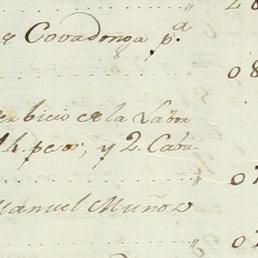 de Covadonga p.a
8
0 8
servicio de la Labra
14 peso, y 2. Caba-
0 7
Manuel Muñoz
0 2